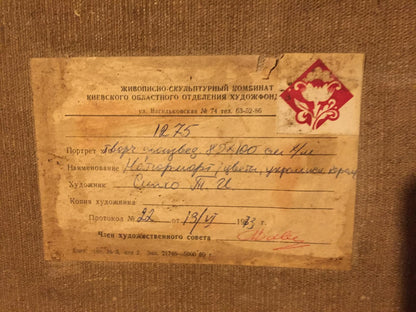 ЖИВОПИСНО-СКУЛЬПТУРНЫЙ КОМБИНАТ
КИЕВСКОГО ОБЛАСТНОГО ОТДЕЛЕНИЯ ХУДОЖФОНДА
ул. Васильковская № 74 тел. 63-02-86
1275
Портрет творч произвед 85х100 см х/м
Наименование Натюрморт, цветы, украинск
Художник Т. И.
Копия художника
Протокол № 22 от 13/VI 1973 г.
Член художественного совета